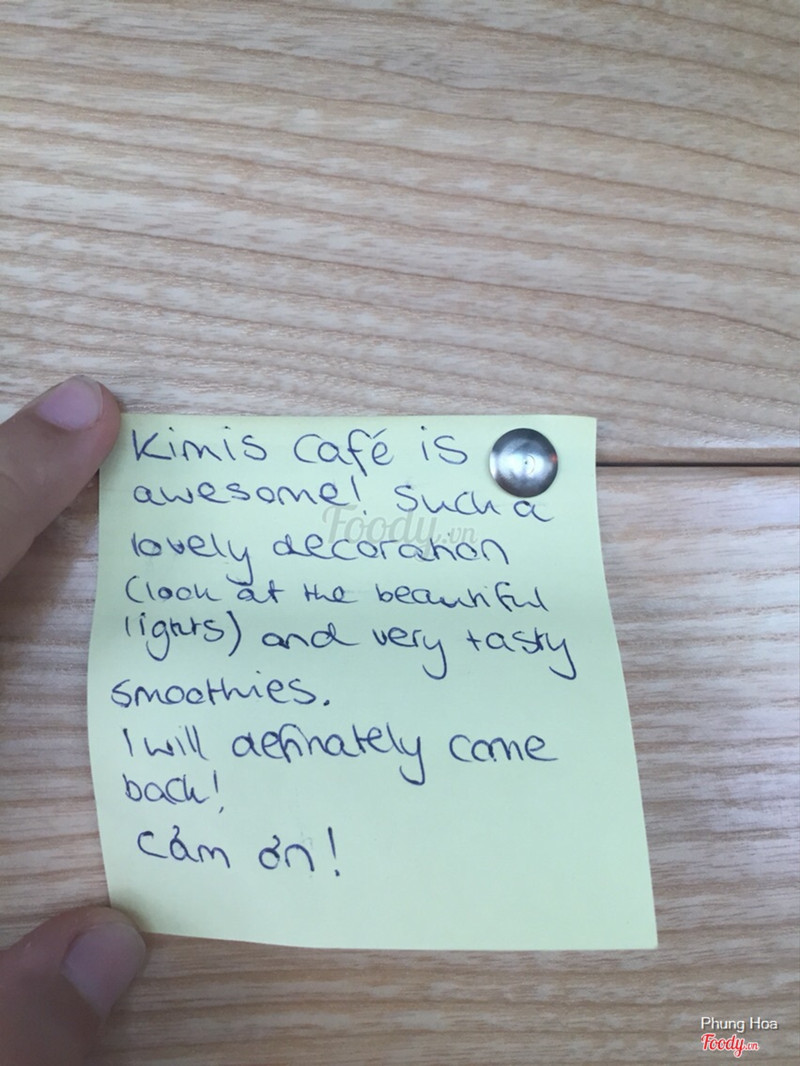 Kimis café is
awesome! Such a
lovely decoration
(look at the beautiful
lights) and very tasty
smoothies.
I will definately come
back!
Cảm ơn!
Foody.vn
Phung Hoa
Foody.vn